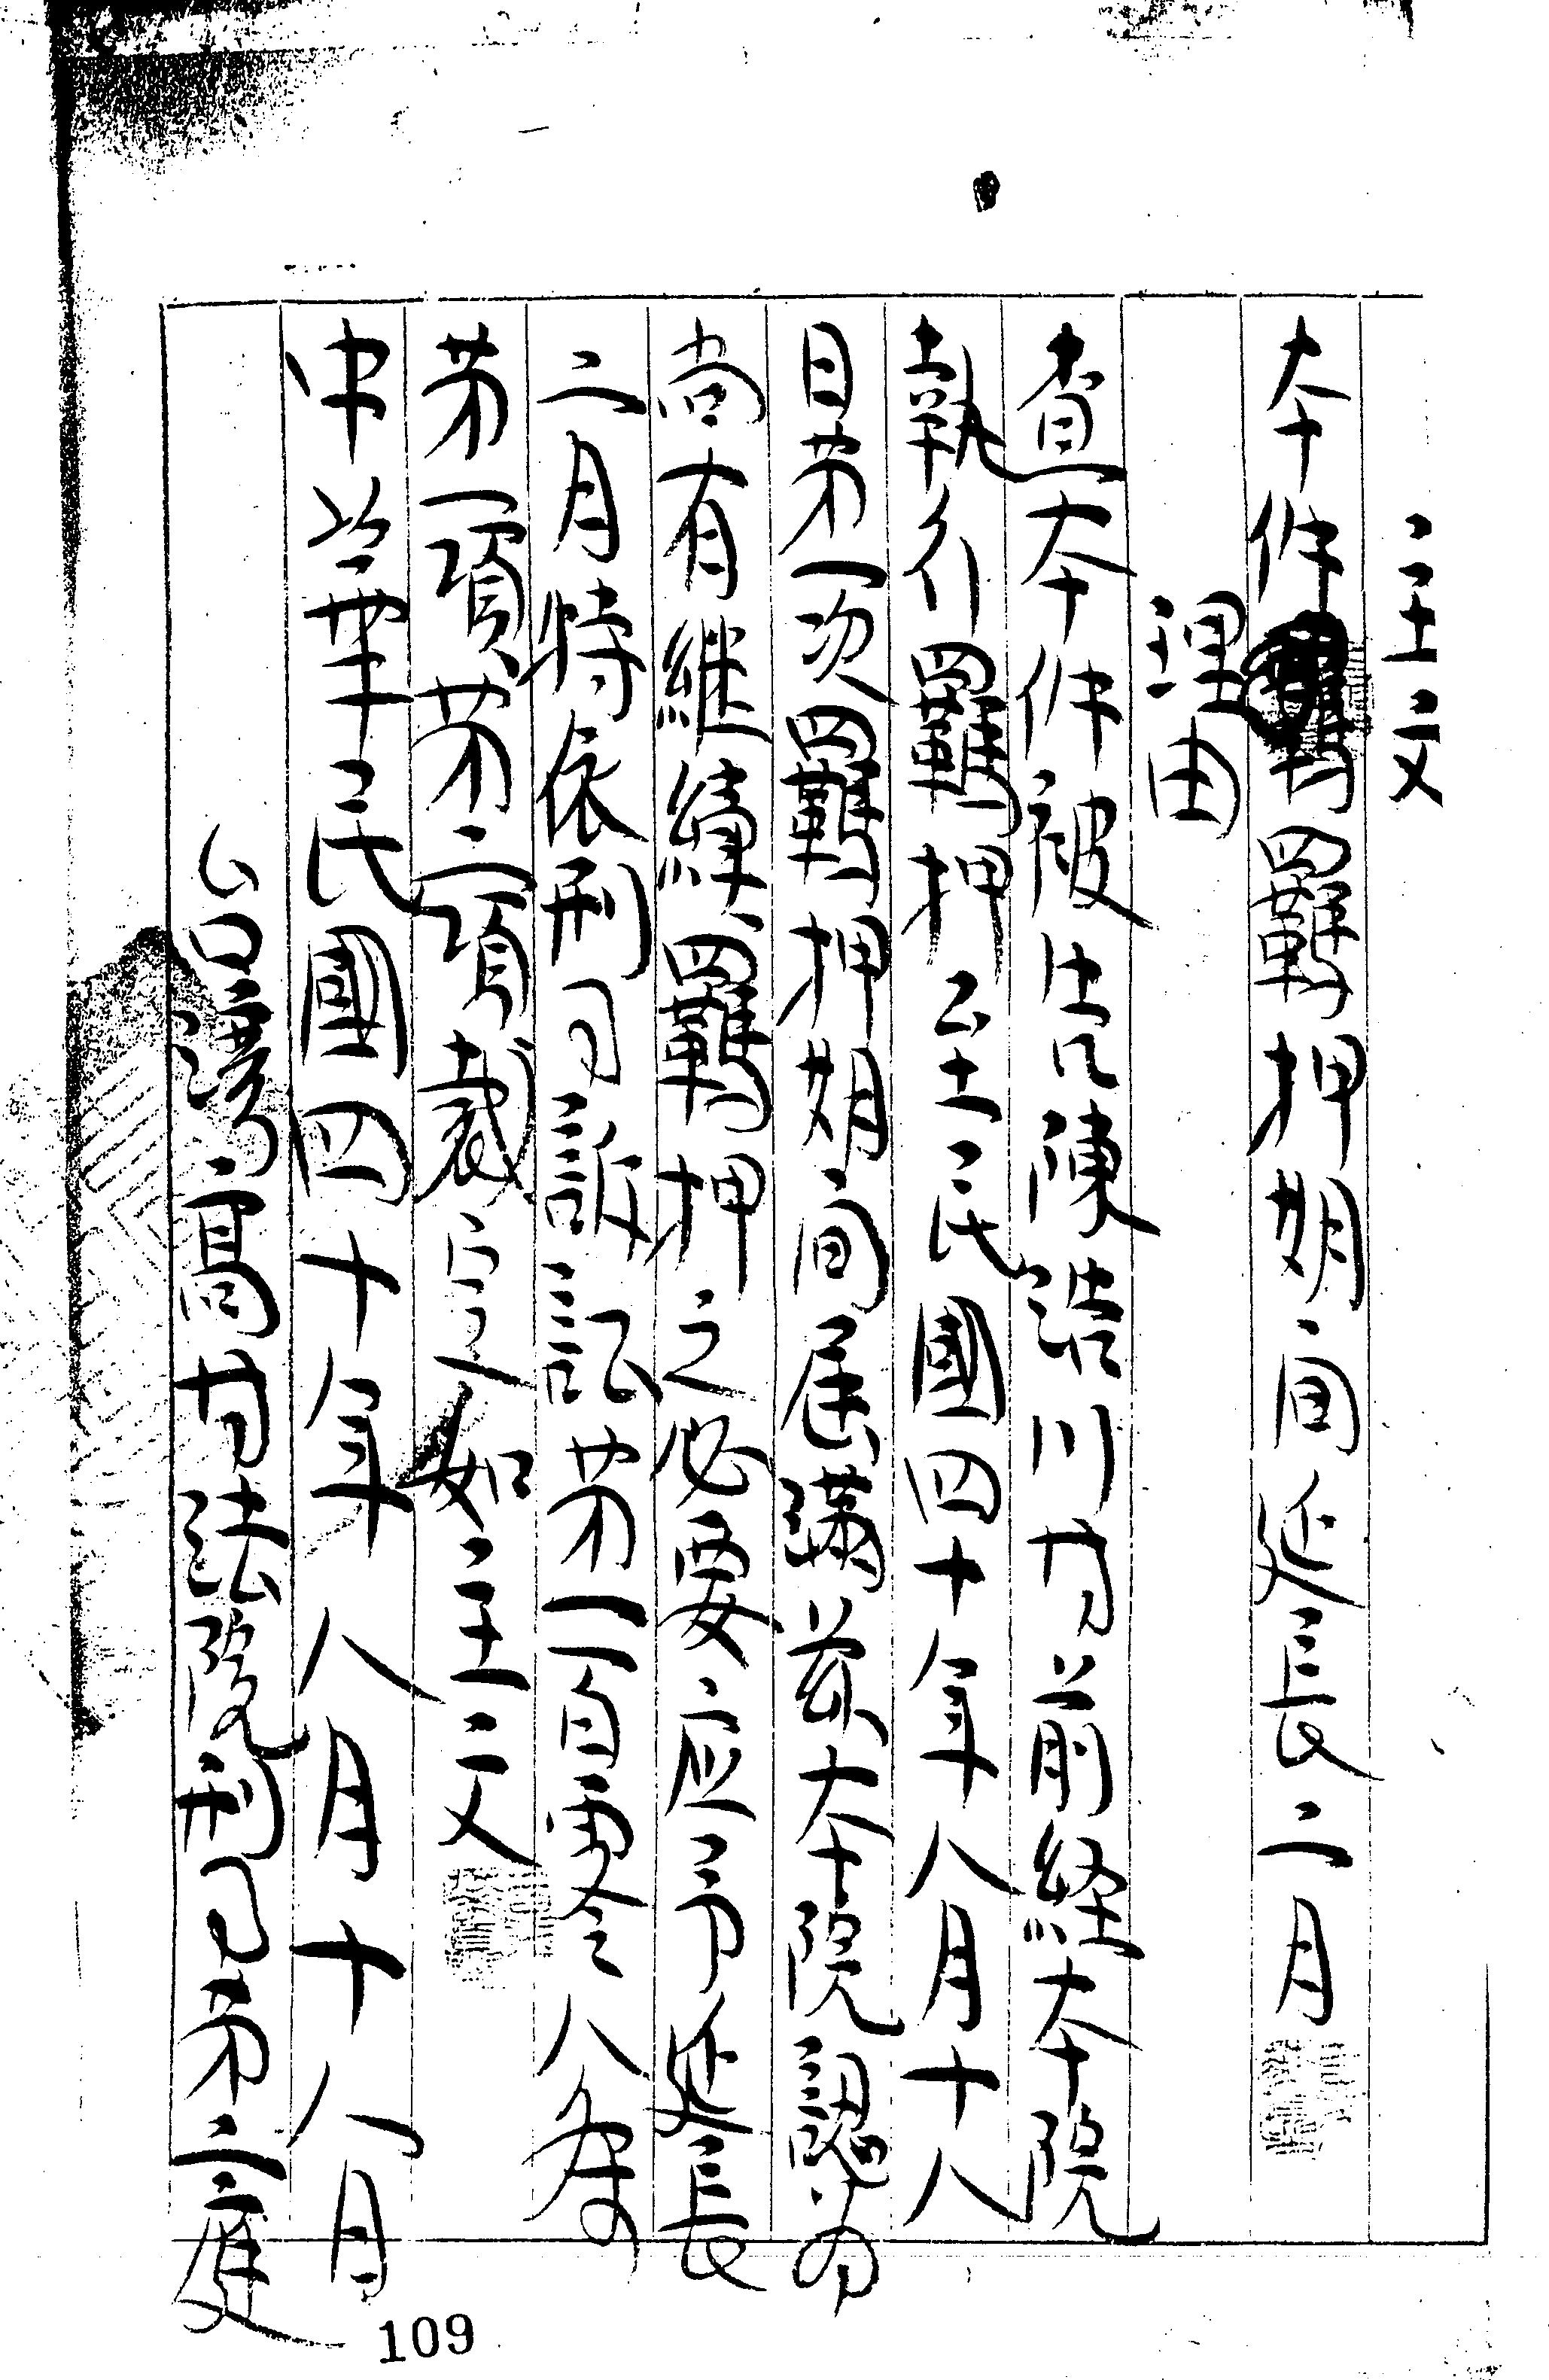 主文
本件羈押期间延長二月
理由
查本件被告陳浩川等前経本院
執行羈押至民國四十年八月十八
日苐一次羈押期间屆满兹本院認為
尚有継續羈押之必要应予延長
二月特依刑司訴訟苐一百零八条
苐一項苐二項裁定如主文
中華民國四十年八月十八日
台湾高等法院刑司苐二庭
109